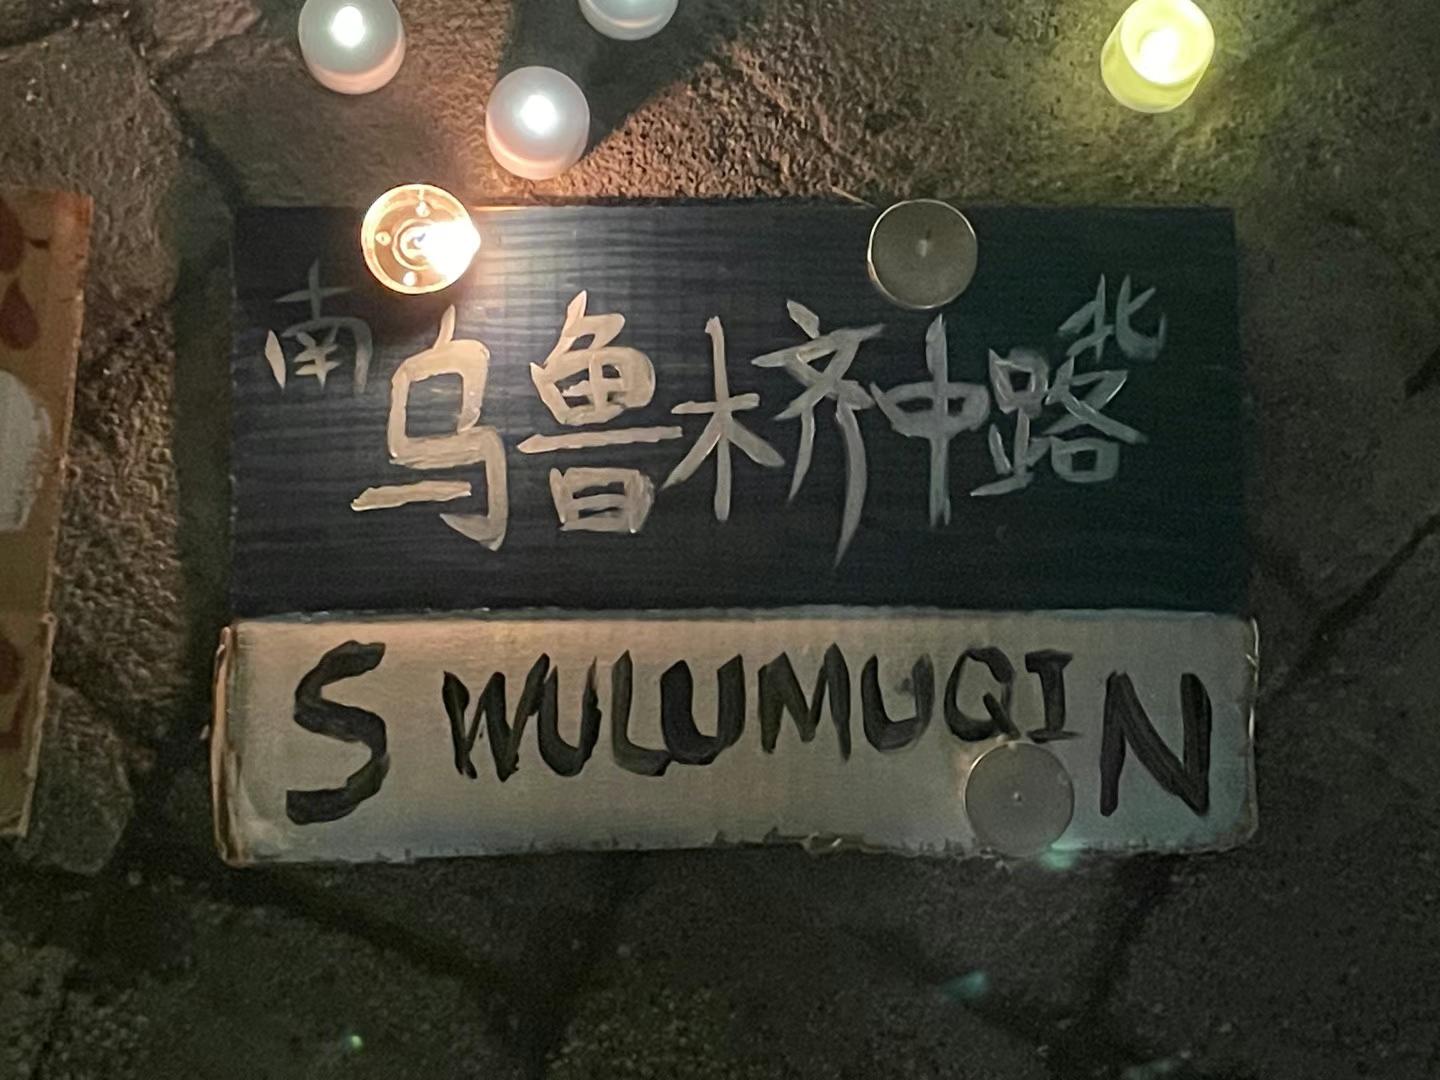 南 乌鲁木齐中路 北
S WULUMUQI N